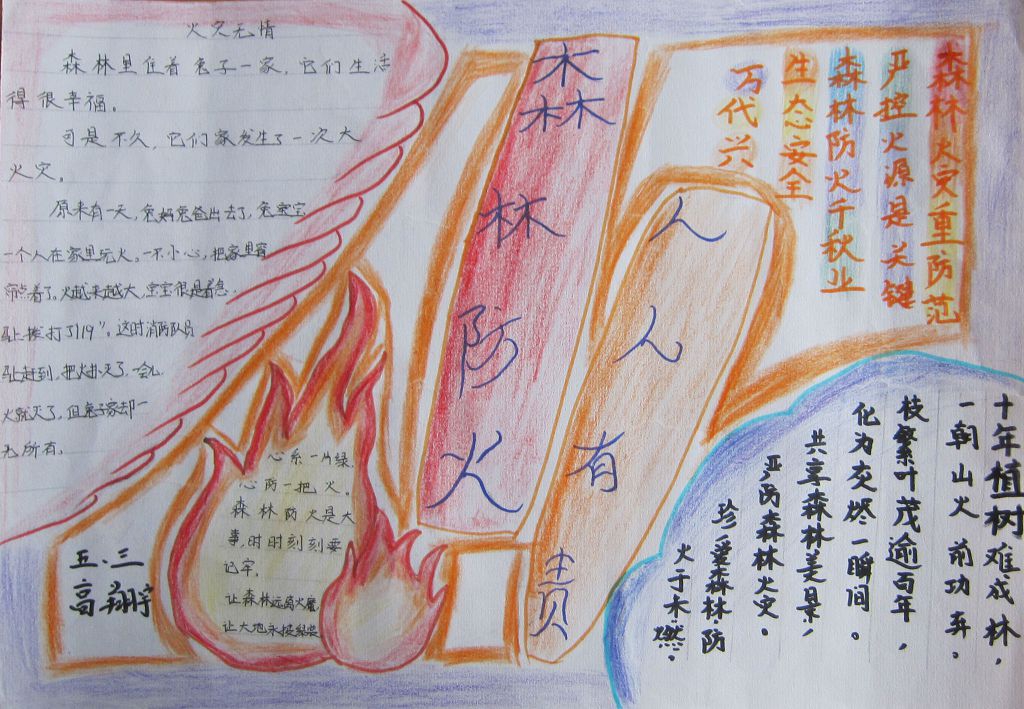 火灾无情
森林里住着兔子一家,它们生活
得很幸福。
可是不久,它们家发生了一次大
火灾。
原来有一天,兔妈兔爸出去了,兔宝宝
一个人在家里玩火。一不小心,把家里窗
帘点着了。火越来越大,宝宝很是着急,
打了"119"。这时消防队员
赶到,把火扑灭了,一会儿
火就灭了,但兔子家却一
无所有。
森
林
防
火
人
人
有
责
森林火灾重防范
严控火源是关键
森林防火千秋业
生态安全
万代兴
心系一片绿,
心防一把火。
森林防火是大
事,时时刻刻要
记牢,
让森林远离火魔,
让大地永披绿装
五.三
高翔宇
十年植树难成林,
一朝山火前功弃。
枝繁叶茂逾百年,
化为灰烬一瞬间。
共享森林美景,
严防森林火灾。
珍重森林·防
火于未·燃。